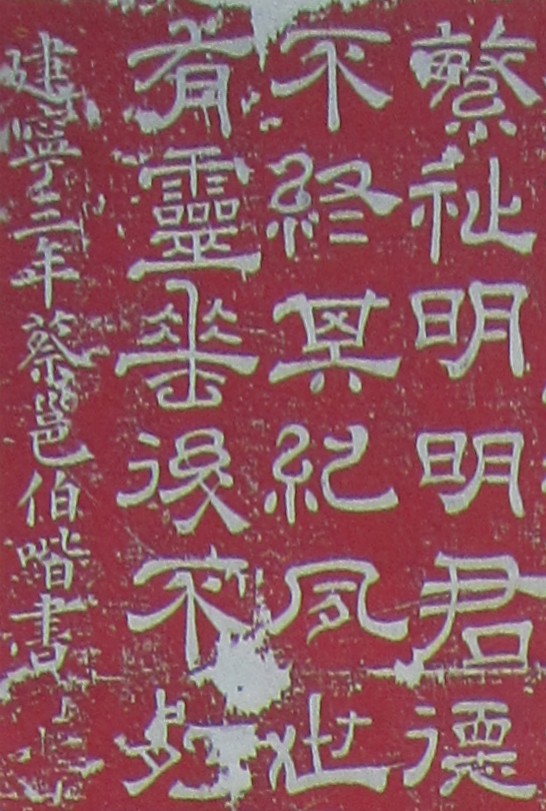 繁祉明明君德
不終其紀夙世
有靈垂後不朽
建寧三年蔡邕伯喈書